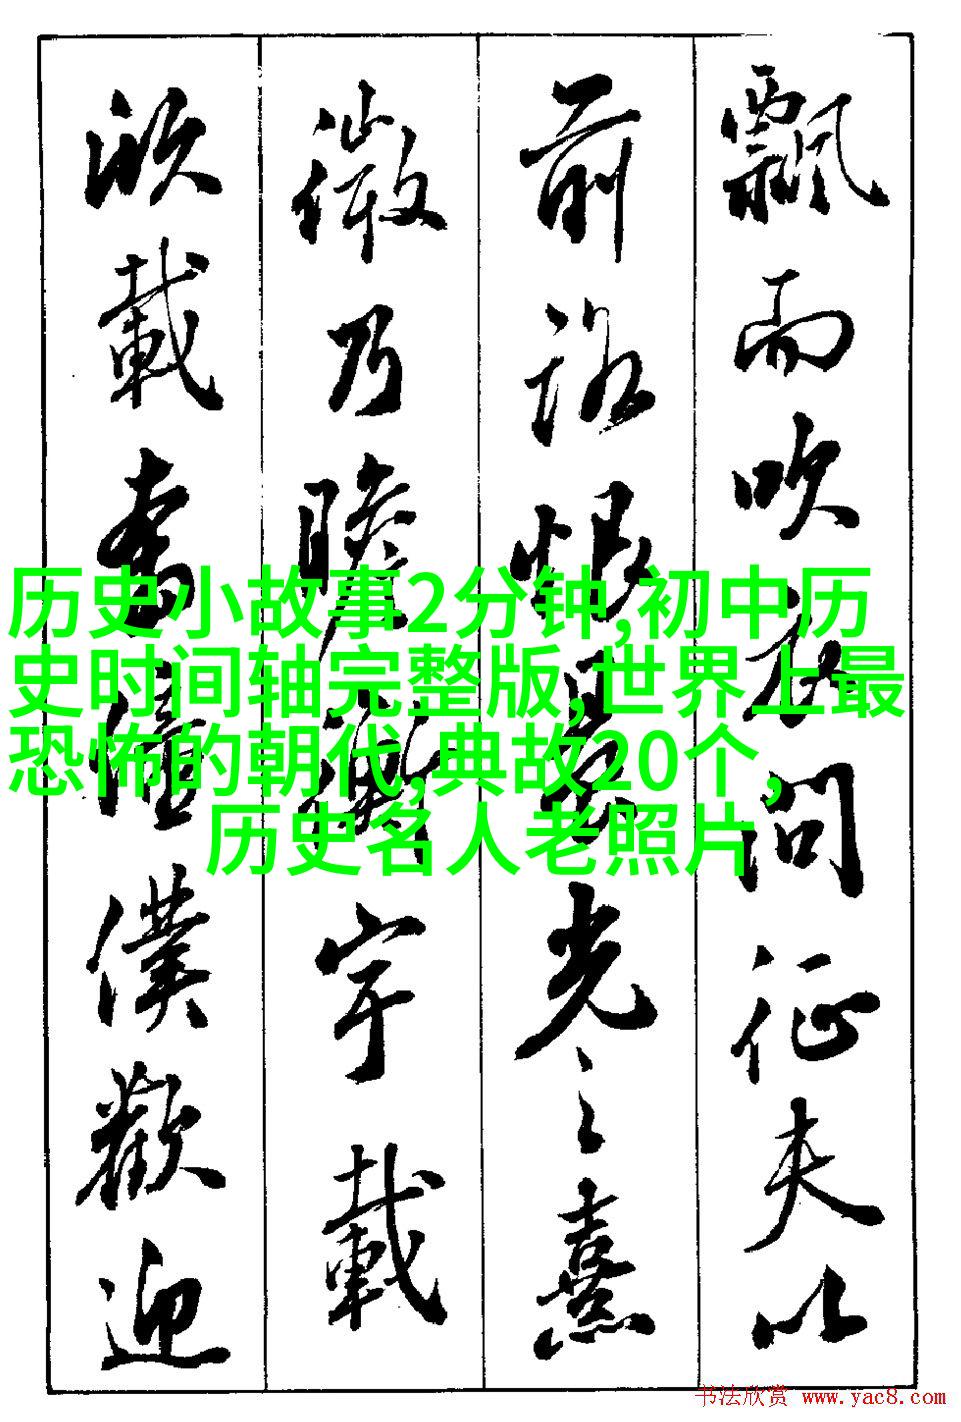 飄而吹衣問征夫以
前路恨晨光之熹
微乃瞻衡宇載
欣載奔僮僕歡迎
历史小故事2分钟,初中历
史时间轴完整版,世界上最
恐怖的朝代,典故20个,
历史名人老照片
书法欣赏 www.yac8.com